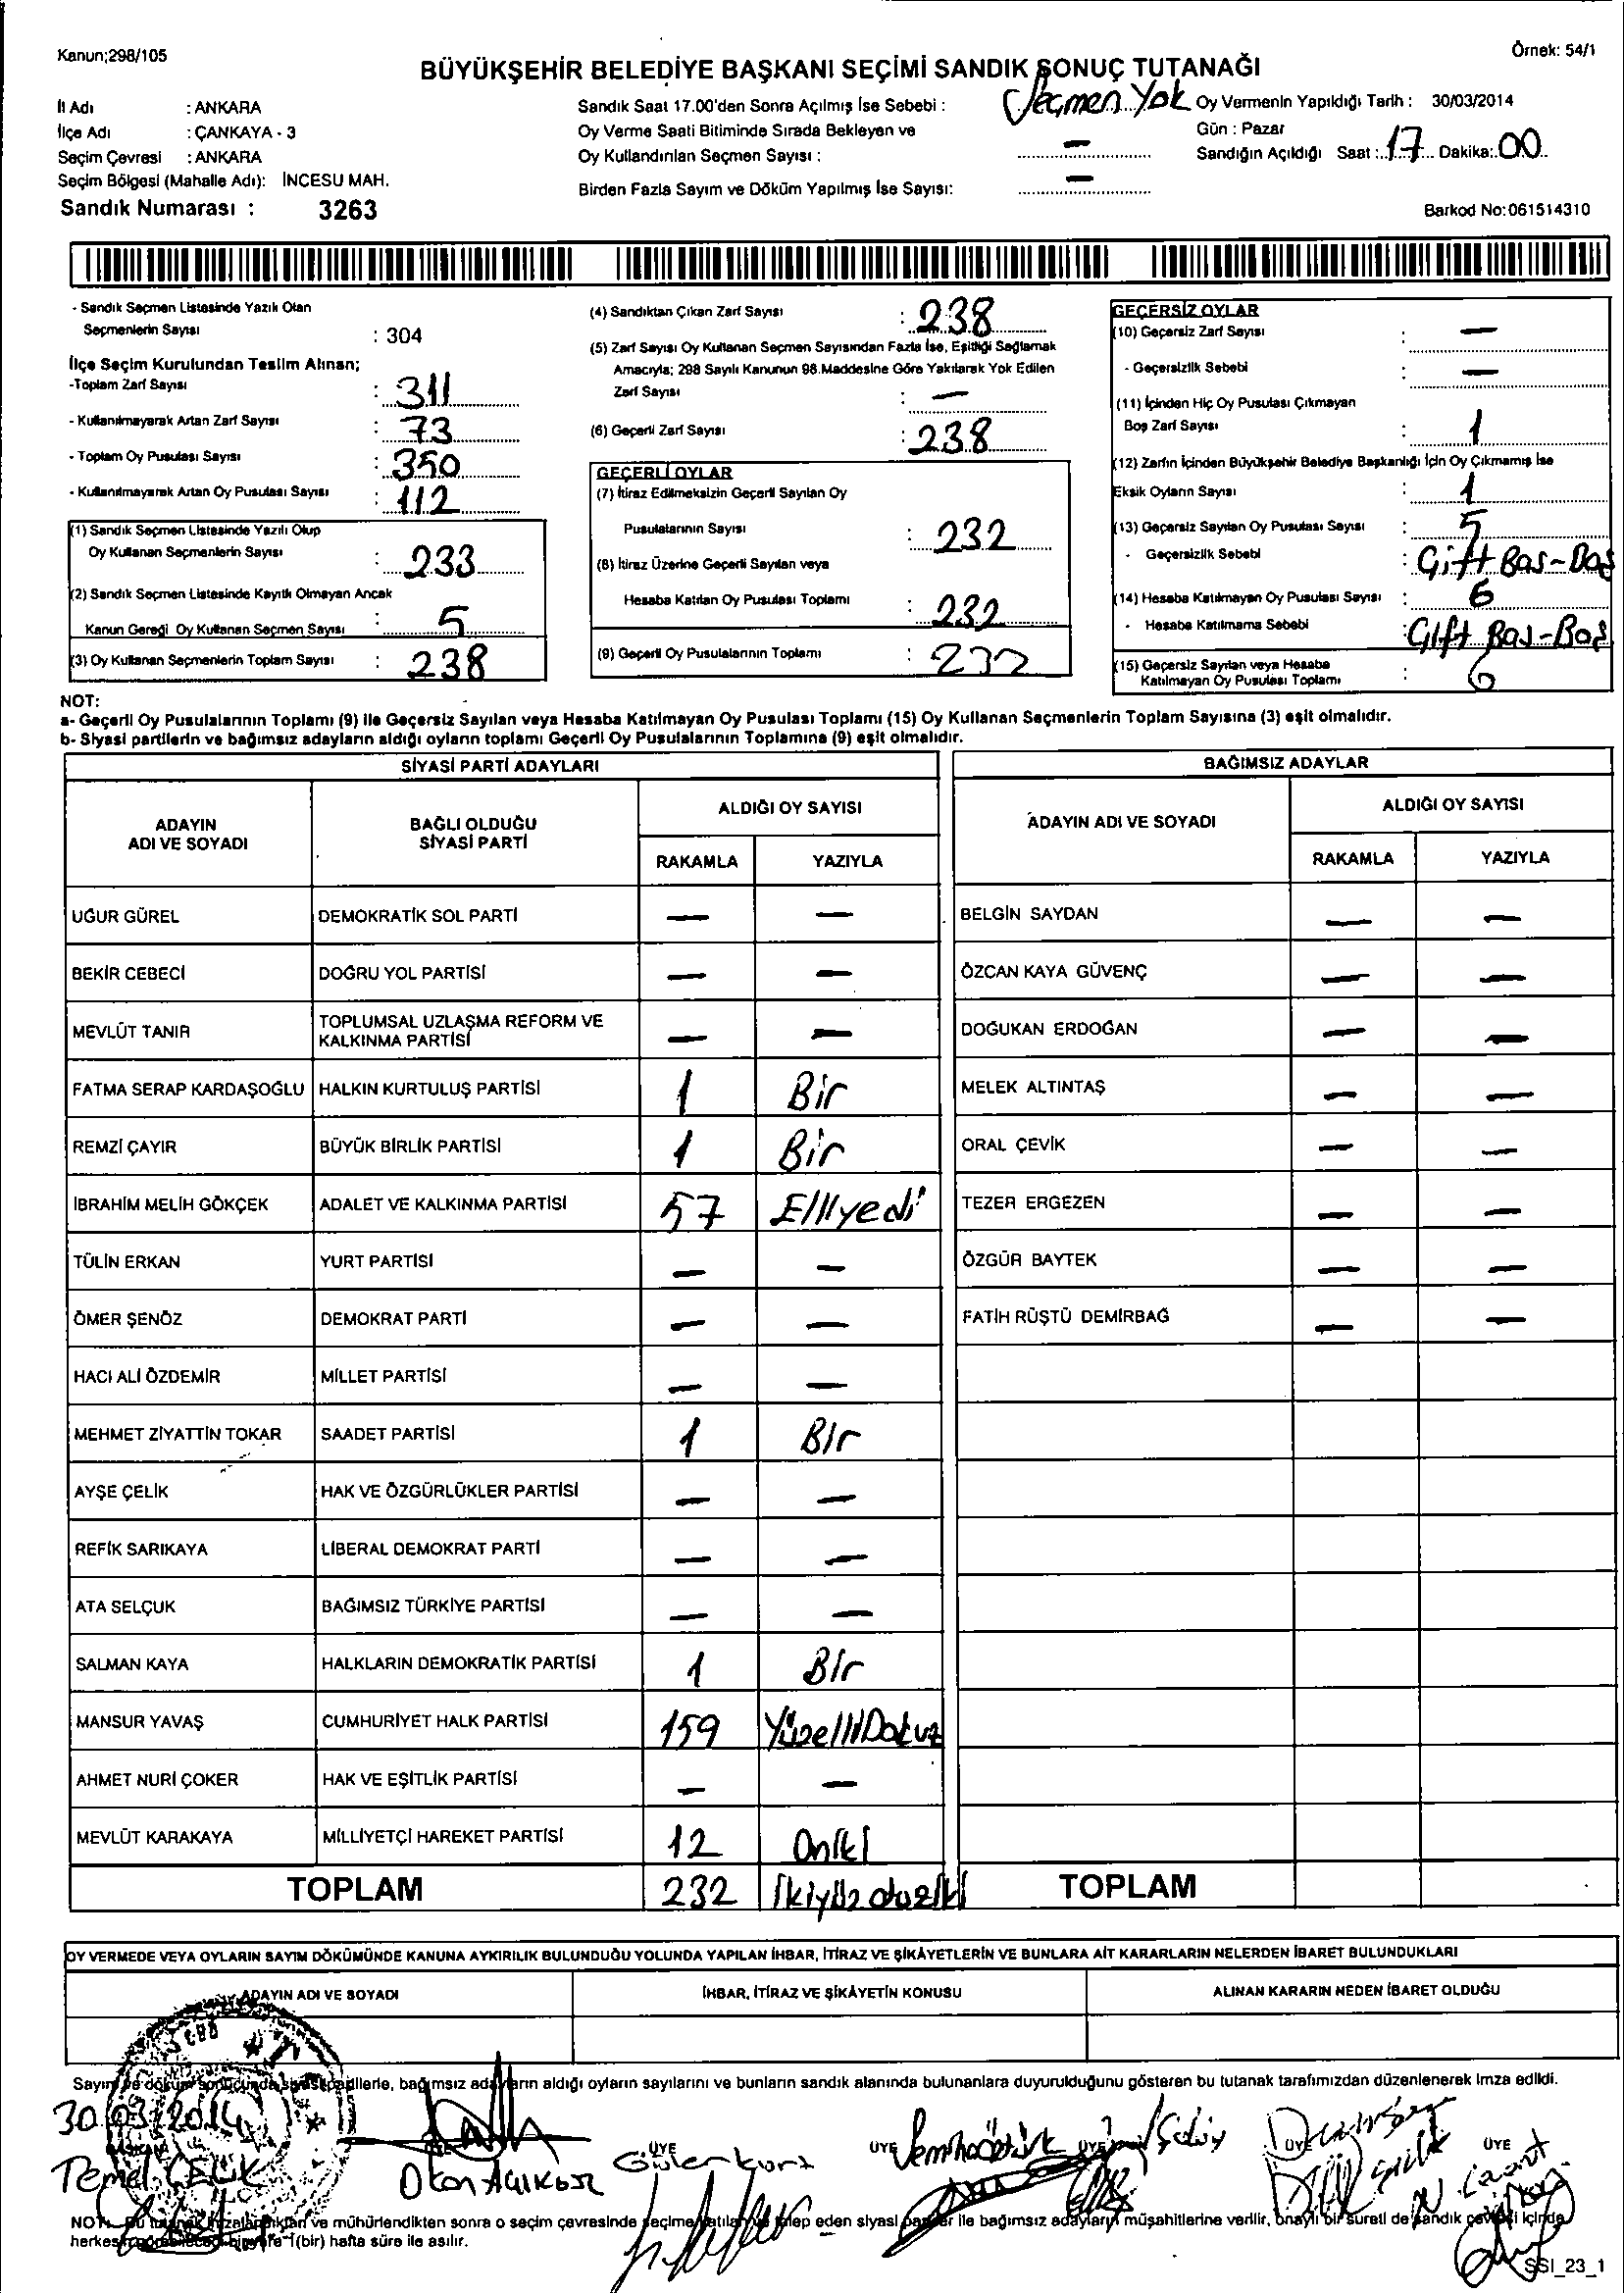 Kanun;298/105
Örnek: 54/1
BÜYÜKŞEHİR BELEDİYE BAŞKANI SEÇİMİ SANDIK SONUÇ TUTANAĞI
İl Adı : ANKARA
İlçe Adı : ÇANKAYA - 3
Seçim Çevresi : ANKARA
Seçim Bölgesi (Mahalle Adı): İNCESU MAH.
Sandık Numarası : 3263
Sandık Saat 17.00'den Sonra Açılmış İse Sebebi : Seçmen Yok
Oy Verme Saati Bitiminde Sırada Bekleyen ve
Oy Kullandırılan Seçmen Sayısı : —
Birden Fazla Sayım ve Döküm Yapılmış İse Sayısı: —
Oy Vermenin Yapıldığı Tarih : 30/03/2014
Gün : Pazar
Sandığın Açıldığı Saat : 17 Dakika: 00
Barkod No:061514310
- Sandık Seçmen Listesinde Yazılı Olan
Seçmenlerin Sayısı : 304
İlçe Seçim Kurulundan Teslim Alınan;
-Toplam Zarf Sayısı : 311
- Kullanılmayarak Artan Zarf Sayısı : 73
- Toplam Oy Pusulası Sayısı : 350
- Kullanılmayarak Artan Oy Pusulası Sayısı : 112
(1) Sandık Seçmen Listesinde Yazılı Olup
Oy Kullanan Seçmenlerin Sayısı : 233
(2) Sandık Seçmen Listesinde Kayıtlı Olmayan Ancak
Kanun Gereği Oy Kullanan Seçmen Sayısı : 5
(3) Oy Kullanan Seçmenlerin Toplam Sayısı : 238
(4) Sandıktan Çıkan Zarf Sayısı : 238
(5) Zarf Sayısı Oy Kullanan Seçmen Sayısından Fazla İse, Eşitliği Sağlamak
Amacıyla; 298 Sayılı Kanunun 98.Maddesine Göre Yakılarak Yok Edilen
Zarf Sayısı : —
(6) Geçerli Zarf Sayısı : 238
GEÇERLİ OYLAR
(7) İtiraz Edilmeksizin Geçerli Sayılan Oy
Pusulalarının Sayısı : 232
(8) İtiraz Üzerine Geçerli Sayılan veya
Hesaba Katılan Oy Pusulası Toplamı : 232
(9) Geçerli Oy Pusulalarının Toplamı : 232
GEÇERSİZ OYLAR
(10) Geçersiz Zarf Sayısı : —
- Geçersizlik Sebebi : —
(11) İçinden Hiç Oy Pusulası Çıkmayan
Boş Zarf Sayısı : 1
(12) Zarfın İçinden Büyükşehir Belediye Başkanlığı İçin Oy Çıkmamış İse
Eksik Oyların Sayısı : 1
(13) Geçersiz Sayılan Oy Pusulası Sayısı : 5
- Geçersizlik Sebebi : Çift Bas-Boş
(14) Hesaba Katılmayan Oy Pusulası Sayısı : 6
- Hesaba Katılmama Sebebi : Çift Bas-Boş
(15) Geçersiz Sayılan veya Hesaba
Katılmayan Oy Pusulası Toplamı : 6
NOT:
a- Geçerli Oy Pusulalarının Toplamı (9) ile Geçersiz Sayılan veya Hesaba Katılmayan Oy Pusulası Toplamı (15) Oy Kullanan Seçmenlerin Toplam Sayısına (3) eşit olmalıdır.
b- Siyasi partilerin ve bağımsız adayların aldığı oyların toplamı Geçerli Oy Pusulalarının Toplamına (9) eşit olmalıdır.
SİYASİ PARTİ ADAYLARI
ADAYIN ADI VE SOYADI BAĞLI OLDUĞU SİYASİ PARTİ ALDIĞI OY SAYISI
RAKAMLA YAZIYLA
UĞUR GÜREL DEMOKRATİK SOL PARTİ — —
BEKİR CEBECİ DOĞRU YOL PARTİSİ — —
MEVLÜT TANIR TOPLUMSAL UZLAŞMA REFORM VE KALKINMA PARTİSİ — —
FATMA SERAP KARDAŞOĞLU HALKIN KURTULUŞ PARTİSİ 1 Bir
REMZİ ÇAYIR BÜYÜK BİRLİK PARTİSİ 1 Bir
İBRAHİM MELİH GÖKÇEK ADALET VE KALKINMA PARTİSİ 57 Elliyedi
TÜLİN ERKAN YURT PARTİSİ — —
ÖMER ŞENÖZ DEMOKRAT PARTİ — —
HACI ALİ ÖZDEMİR MİLLET PARTİSİ — —
MEHMET ZİYATTİN TOKAR SAADET PARTİSİ 1 Bir
AYŞE ÇELİK HAK VE ÖZGÜRLÜKLER PARTİSİ — —
REFİK SARIKAYA LİBERAL DEMOKRAT PARTİ — —
ATA SELÇUK BAĞIMSIZ TÜRKİYE PARTİSİ — —
SALMAN KAYA HALKLARIN DEMOKRATİK PARTİSİ 1 Bir
MANSUR YAVAŞ CUMHURİYET HALK PARTİSİ 159 YüzelliDokuz
AHMET NURİ ÇOKER HAK VE EŞİTLİK PARTİSİ — —
MEVLÜT KARAKAYA MİLLİYETÇİ HAREKET PARTİSİ 12 Oniki
TOPLAM 232 İkiyüz otuziki
BAĞIMSIZ ADAYLAR
ADAYIN ADI VE SOYADI ALDIĞI OY SAYISI
RAKAMLA YAZIYLA
BELGİN SAYDAN — —
ÖZCAN KAYA GÜVENÇ — —
DOĞUKAN ERDOĞAN — —
MELEK ALTINTAŞ — —
ORAL ÇEVİK — —
TEZER ERGEZEN — —
ÖZGÜR BAYTEK — —
FATİH RÜŞTÜ DEMİRBAĞ — —
TOPLAM
OY VERMEDE VEYA OYLARIN SAYIM DÖKÜMÜNDE KANUNA AYKIRILIK BULUNDUĞU YOLUNDA YAPILAN İHBAR, İTİRAZ VE ŞİKÂYETLERİN VE BUNLARA AİT KARARLARIN NELERDEN İBARET BULUNDUKLARI
ADAYIN ADI VE SOYADI İHBAR, İTİRAZ VE ŞİKÂYETİN KONUSU ALINAN KARARIN NEDEN İBARET OLDUĞU
Sayım ve döküm sonucunda siyasi partilerle, bağımsız adayların aldığı oyların sayılarını ve bunların sandık alanında bulunanlara duyurulduğunu gösteren bu tutanak tarafımızdan düzenlenerek imza edildi.
30.03.2014
BAŞKAN ÜYE ÜYE ÜYE ÜYE ÜYE
Temel ÇELİK Okan Açıkköse Gülen Kurt
NOT: Bu tutanak imzalandıktan ve mühürlendikten sonra o seçim çevresinde seçime katılan ve talep eden siyasi partiler ile bağımsız adayların müşahitlerine verilir, onaylı bir sureti de sandık çevresi içinde
herkesin görebileceği bir yere 1(bir) hafta süre ile asılır.
SSI_23_1